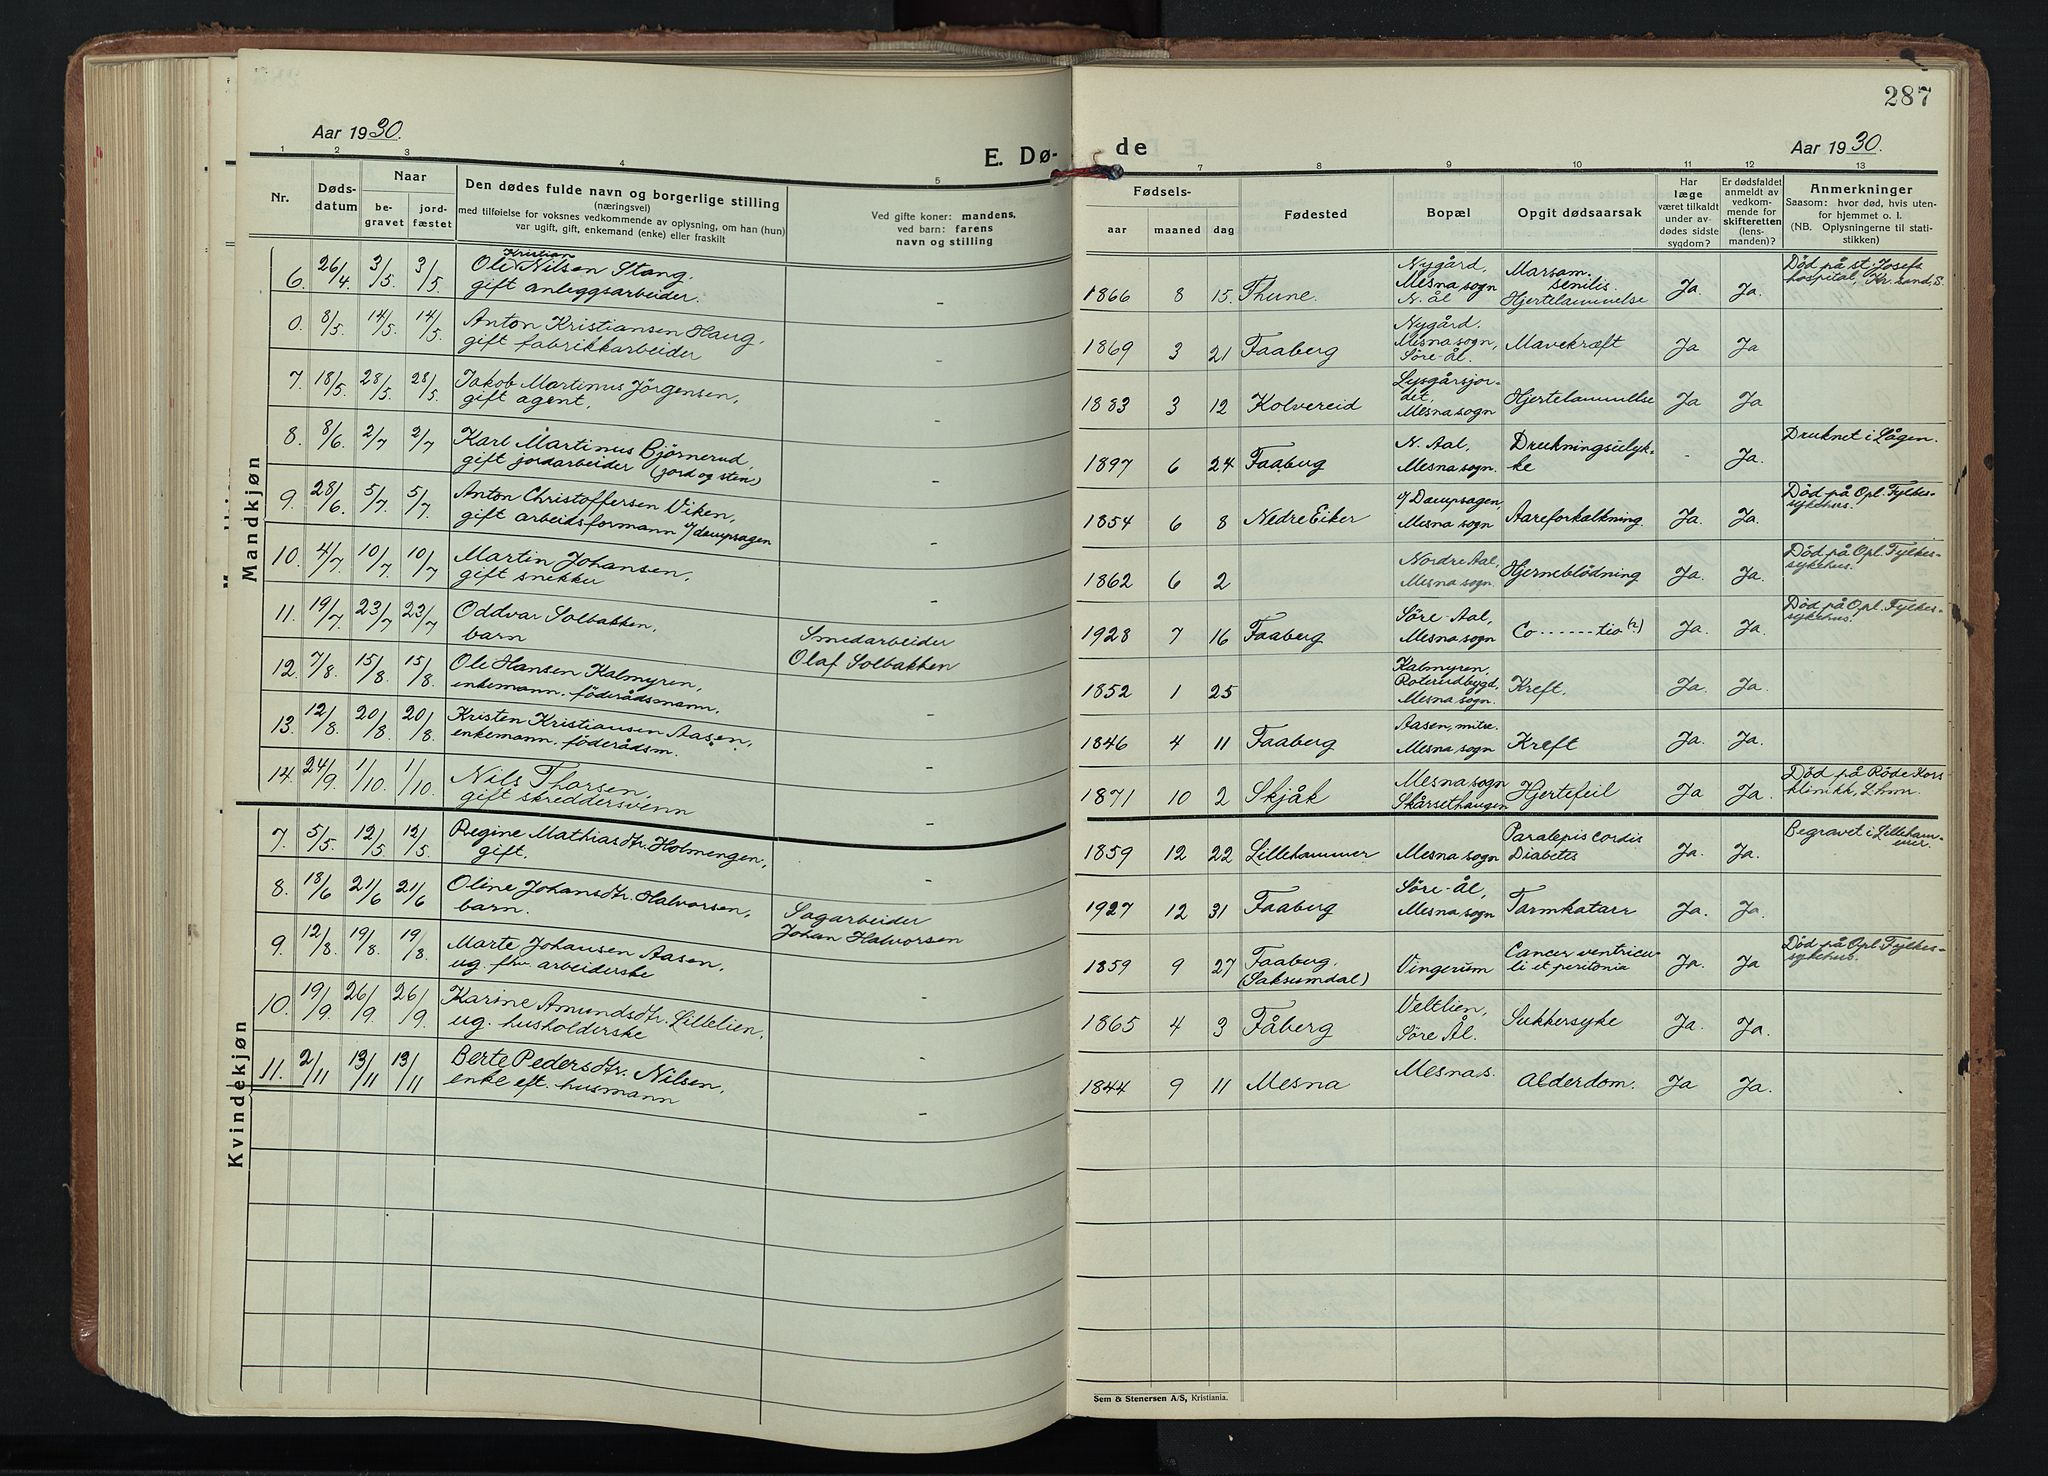 287
Aar 1930.
E. Dø-
de
Aar 1930.
1 2 3 4 5 7 8 9 10 11 12 13
Nr.
Døds-
datum
Naar
be-
gravet
jord-
fæstet
Den dødes fulde navn og borgerlige stilling
(næringsvei)
med tilføielse for voksnes vedkommende av oplysning, om han (hun)
var ugift, gift, enkemand (enke) eller fraskilt
Ved gifte koner: mandens,
ved barn: farens
navn og stilling
Fødsels-
aar maaned dag
Fødested
Bopæl
Opgit dødsaarsak
Har
læge
været tilkaldt
under av-
dødes sidste
sygdom?
Er dødsfaldet
anmeldt av
vedkom-
mende for
skifteretten
(lens-
manden)?
Anmerkninger
Saasom: hvor død, hvis uten-
for hjemmet o. l.
(NB. Oplysningerne til stati-
stikken)
Mandkjøn
6. 26/4. 3/5. 3/5. Ole Kristian Nilsen Stang,
gift anleggsarbeider. -
1866 8 15. Thune.
Nygård,
Mesna sogn
N. ål
Marsam.
senilis.
Hjertelammelse
Ja. Ja.
Død på st. Josefs
hospital, Kr.sand, S.
0. 8/5. 14/5. 14/5. Anton Kristiansen Haug,
gift fabrikkarbeider -
1869 3 21 Faaberg
Nygård.
Mesna sogn,
Søre-ål.
Mavekræft Ja Ja
7. 18/5. 28/5. 28/5. Jakob Martinus Jörgensen,
gift agent. -
1883 3 12 Kolvereid
Lysgårsjor-
det,
Mesna sogn
Hjertelammelse Ja Ja
8. 8/6. 2/7 2/7 Karl Martinus Bjørnerud,
gift jordarbeider (jord og sten) -
1897 6 24 Faaberg
N. Aal,
Mesna sogn.
Drukningsulyk-
ke
- Ja.
Druknet i Lågen.
9. 28/6. 5/7. 5/7. Anton Christoffersen Viken,
gift arbeidsformann v/ dampsagen -
1854 6 8 Nedre Eiker
v/ Dampsagen,
Mesna sogn
Aareforkalkning. Ja. Ja.
Død på Opl. Fylkes-
sykehus.
10. 4/7. 10/7. 10/7 Martin Johansen,
gift snekker -
1862 6 2
Nordre Aal,
Mesna sogn.
Hjerneblödning Ja. Ja.
Död på Opl. Fylkes-
sykehus.
11. 19/7. 23/7 23/7 Oddvar Solbakken,
barn
Smedarbeider
Olaf Solbakken
1928 7 16 Faaberg
Söre-Aal,
Mesna sogn
Co-------tio (?) Ja. Ja.
Död på Opl. Fylkes-
sykehus.
12. 7/8. 15/8. 15/8. Ole Hansen Kalmyren,
enkemann. föderådsmann. -
1852 1 25
Kalmyren,
Roterudbygd,
Mesna sogn.
Kreft. Ja. Ja.
13. 12/8. 20/8. 20/8. Kristen Kristiansen Aasen,
enkemann. föderådsm. -
1846 4 11 Faaberg
Aasen, mitre.
Mesna sogn
Kreft Ja. Ja.
14. 24/9. 1/10. 1/10. Nils Thorsen,
gift skreddersvenn -
1871 10 2 Skjåk
Mesna sogn
Skårsethaugen
Hjertefeil Ja Ja.
Död på Röde Kors
klinikk, L.hmr.
Kvindekjøn
7. 5/5. 12/5. 12/5. Regine Mathiasdtr. Holmengen,
gift. -
1859 12 22 Lillehammer Mesna sogn
Diabetes
Ja. Ja.
Begravet i Lilleham-
mer.
8. 18/6 21/6 21/6 Oline Johansdtr. Halvorsen,
barn.
Sagarbeider
Johan Halvorsen
1927 12 31 Faaberg
Söre-ål,
Mesna sogn
Tarmkatarr Ja. Ja.
9. 12/8. 19/8. 19/8. Marte Johansen Aasen,
ug. fhv arbeiderske -
1859 9 27 Faaberg,
(Saksumdal)
Vingerum
Cancer ventricu-
li et peritonia
Ja. Ja
Död på Opl. Fylkes-
sykehus.
10. 19/9. 26/9 26/9 Karine Amundsdtr. Lillelien,
ug. husholderske -
1865 4 3 Fåberg
Veltlien,
Söre Ål.
Sukkersyke Ja. Ja.
11. 2/11 13/11 13/11 Berte Pedersdtr. Nilsen,
enke eft. husmann -
1844 9 11 Mesna Mesna s. Alderdom. Ja Ja.
Sem & Stenersen A/S, Kristiania.